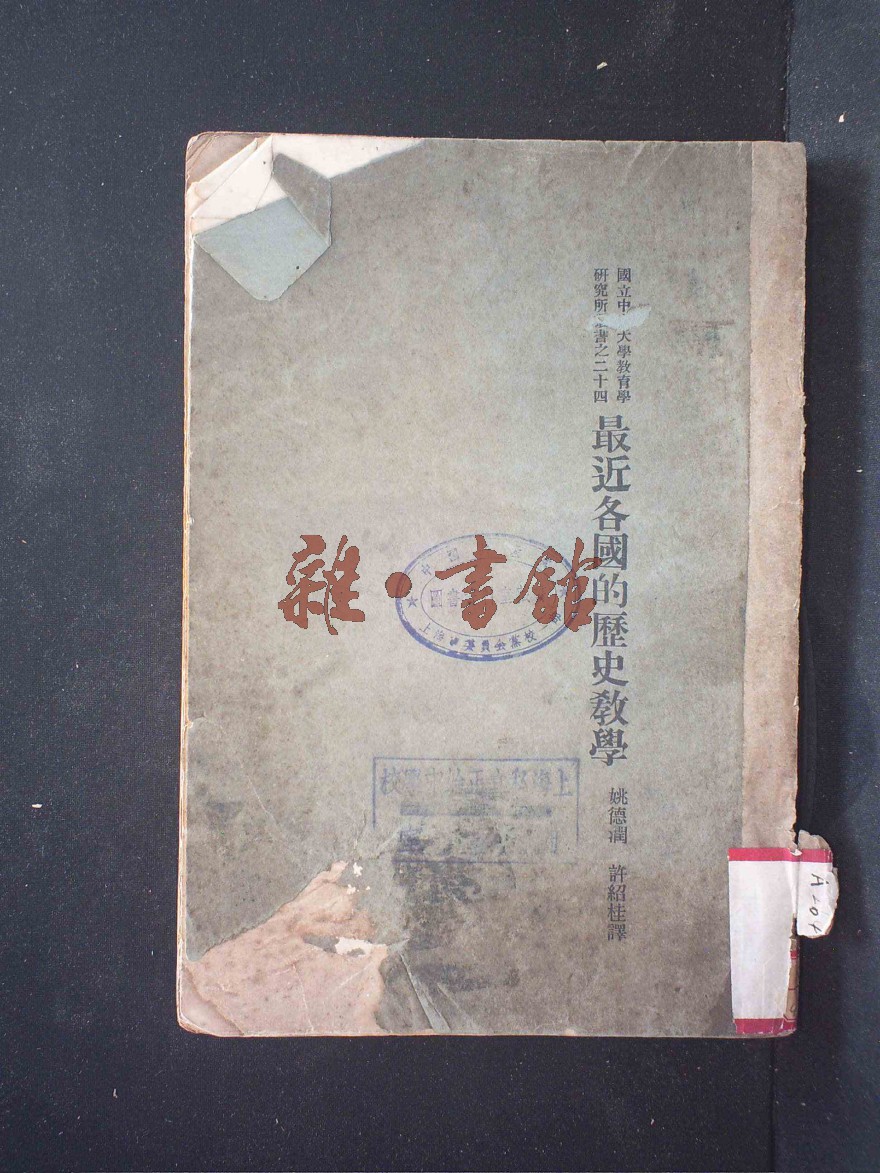 國立中 大學教育學
研究所 書之二十四
最近各國的歷史教學
姚德潤 許紹桂譯
雜·書館
中國
圖書
上海 委員會黨校
上海 立正 中學校
A-0